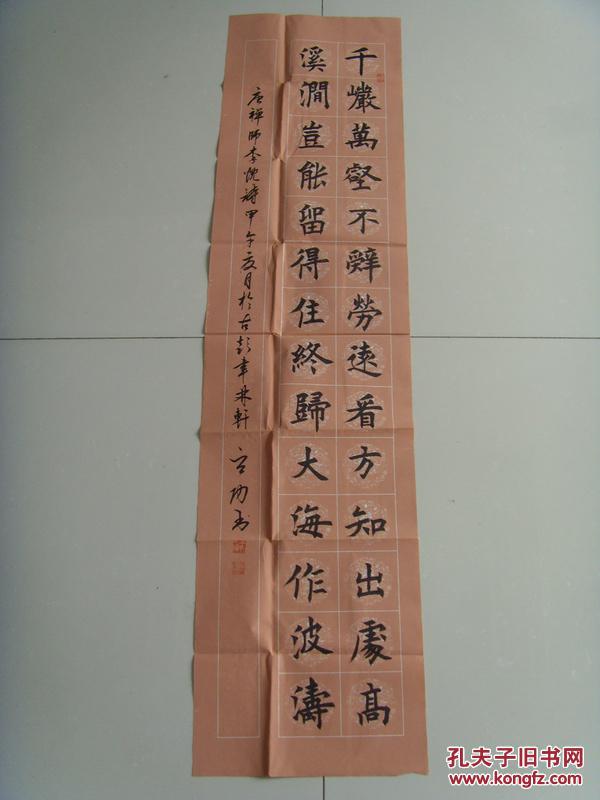 千巖萬壑不辤勞遠看方知出處高
溪澗豈能留得住終歸大海作波濤
唐禅师李忱詩甲午夏月於古彭
軒
孔夫子旧书网
www.kongfz.com